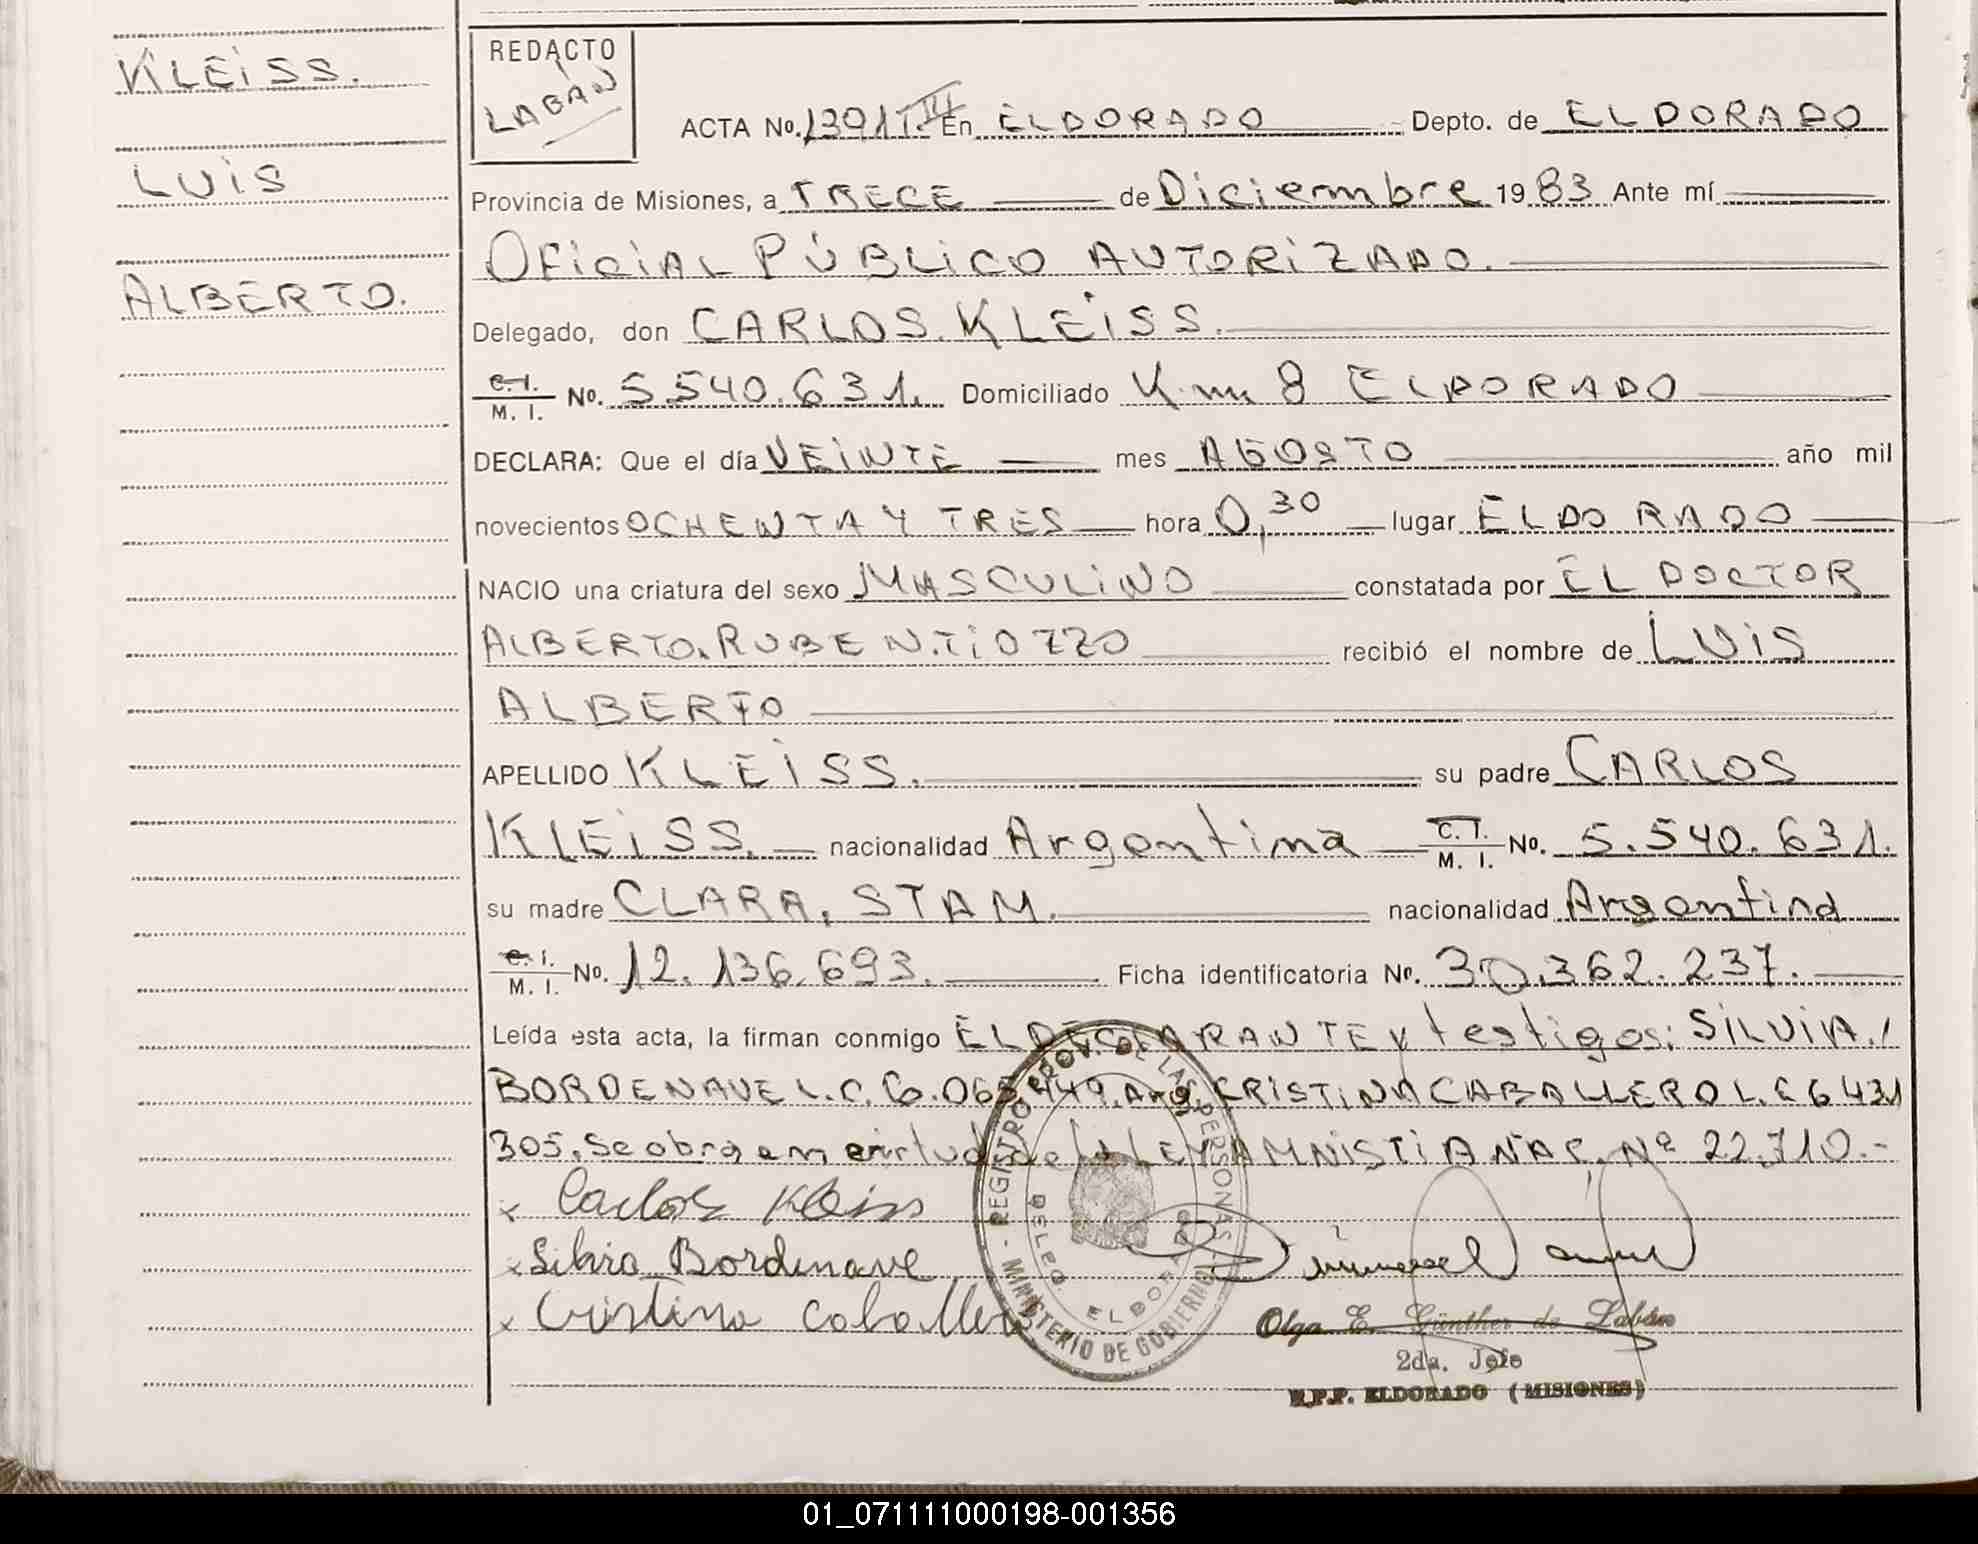 KLEiSS.
LUiS
ALBERTO.
REDACTO
LABAN
ACTA No. 1391 T. III En ELDORADO Depto. de ELDORADO
Provincia de Misiones, a TRECE de Diciembre 1983 Ante mí
OFiCiAL PÚBLiCO AUTORiZADO.
Delegado, don CARLOS. KLEiSS.
C. I. M. I. No. 5.540.631. Domiciliado Km 8 ELDORADO
DECLARA: Que el día VEiNTE mes AGOSTO año mil
novecientos OCHENTA Y TRES hora 0,30 lugar ELDORADO
NACIO una criatura del sexo MASCULiNO constatada por EL DOCTOR
ALBERTO. RUBEN. TiOZZO recibió el nombre de LUiS
ALBERTO
APELLIDO KLEiSS. su padre CARLOS
KLEiSS. nacionalidad Argentina C. I. M. I. No. 5.540.631.
su madre CLARA. STAM. nacionalidad Argentina
C. I. M. I. No. 12.136.693. Ficha identificatoria No. 30.362.237.
Leída esta acta, la firman conmigo EL DECLARANTE y testigos: SiLViA /
BORDENAVE L.C. 6.065.449. Arg. CRiSTiNA CABALLERO L.C 6431
305. Se obra en virtud de la LEY AMNiSTiA NAC. Nº 22.710.-
x Carlos Kleiss
x Silvia Bordenave
x Cristina Caballero
- REGISTRO PROV. DE LAS PERSONAS -
MINISTERIO DE GOBIERNO
DELEG. ELDORADO
Olga E. Günther de Labán
2da. Jefe
R.P.P. ELDORADO (MISIONES)
01_071111000198-001356